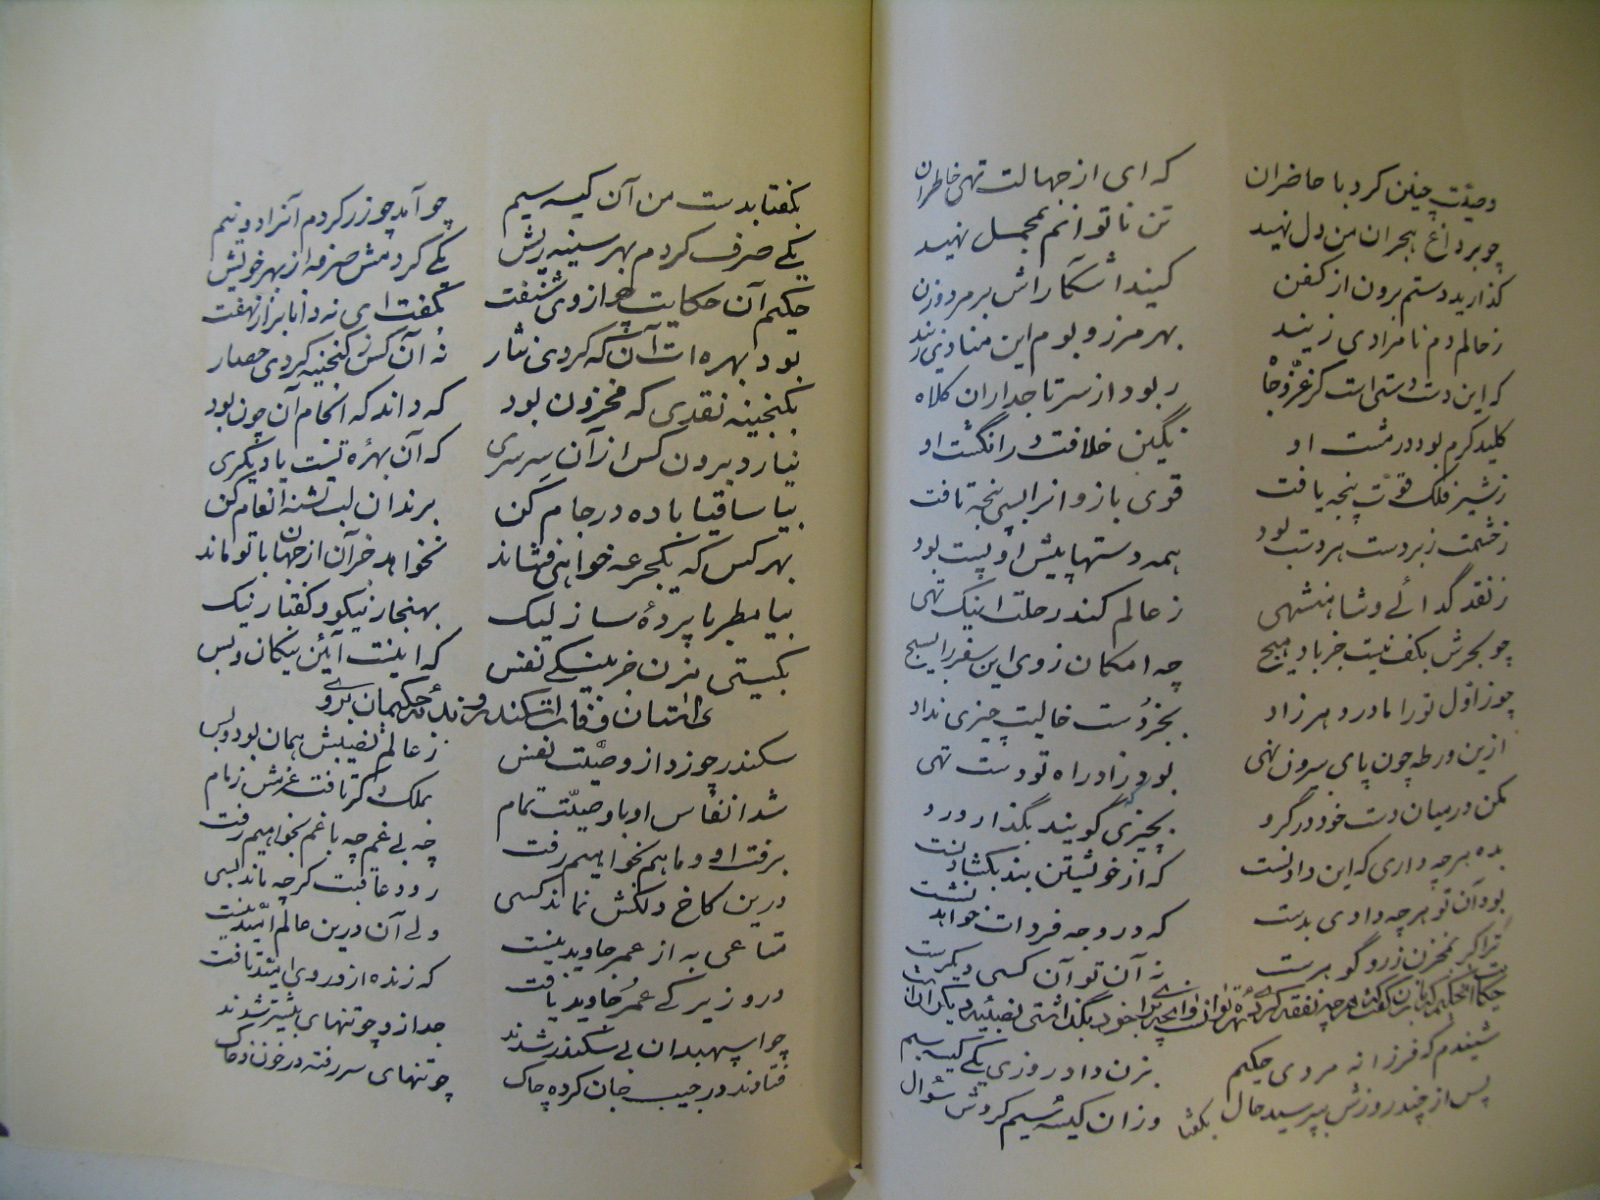 وصیت چنین کرد با حاضران که ای از جهالت تهی خاطران
چو بر داغ هجران من دل نهید تن ناتوانم بمحمل نهید
گذارید دستم برون از کفن کنید آشکاراش بر مرد و زن
ز حالم دم نامرادی زنید بهر مرز و بوم این منادی زنید
که این دست دستی است کز عز و جاه ربود از سر تاجداران کلاه
کلید کرم بود در مشت او نگین خلافت در انگشت او
ز شیر فلک قوت پنجه یافت قوی بازوانرا بسی پنجه تافت
ز حشمت زبردست هر دست بود همه دستها پیش او پست بود
ز نقد گدائی و شاهنشهی ز عالم کند رحلت اینک تهی
چو بحرش بکف نیست جز باد هیچ چه امکان ز وی این سفر را بسیج
چو ز اول تو را مادر دهر زاد بجز دست خالیت چیزی نداد
ازین ورطه چون پای بیرون نهی بود زاد راه تو دست تهی
مکن در میان دست خود در گرو بچیزی که گویند بگذار و رو
بده هر چه داری که این دادنست که از خویشتن بند بگشادنست
بود آن تو هر چه دادی بدست که در وجه فردات خواهد نشست
ترا گر بمخزن زر و گوهرست نه آن تو آن کسی دیگرست
شنیدم که فرزانه مردی حکیم بزن داد روزی یکی کیسه سیم
پس از چند روزش بپرسید حال وزان کیسه سیم کردش سؤال
بگفتا
بگفتا بدست من آن کیسه سیم چو آمد چو زر کردم آنرا دو نیم
یکی صرف کردم بهر سینه ریش یکی کردمش صرفه از بهر خویش
حکیم آن حکایت چو از وی شنفت بگفت ای نه دانا براز نهفت
بود بهره ات آن که کردی نثار نه آن کش ز گنجینه کردی حصار
بگنجینه نقدی که مخزون بود که داند که انجام آن چون بود
نیارد برون کس از آن سرسری که آن بهره تست یا دیگری
بیا ساقیا باده در جام کن برندان لب تشنه انعام کن
بهر کس که یکجرعه خواهی فشاند نخواهد جز آن از جهان با تو ماند
بیا مطربا پرده ساز لیک بهنجار نیکو و گفتار نیک
بگیتی مزن جز بنیکی نفس که اینست آئین نیکان و بس
داستان وفات اسکندر و ندبه حکیمان بر وی
سکندر چو زد از وصیت نفس ز عالم نصیبش همان بود و بس
شد انفاس او با وصیت تمام بملک دگر تافت عزمش زمام
برفت او و ما هم بخواهیم رفت چه بی غم چه با غم بخواهیم رفت
درین کاخ دلکش نماند کسی رود عاقبت گر چه ماند بسی
متاعی به از عمر جاوید نیست ولی آن درین عالم امید نیست
درو زیرکی عمر جاوید یافت که زنده ازو روی امید تافت
چو اسپهبدان بی سکندر شدند جدا زو چو تنهای بیسر شدند
فتادند در جیب جان کرده چاک چو تنهای سر رفته در خون و خاک